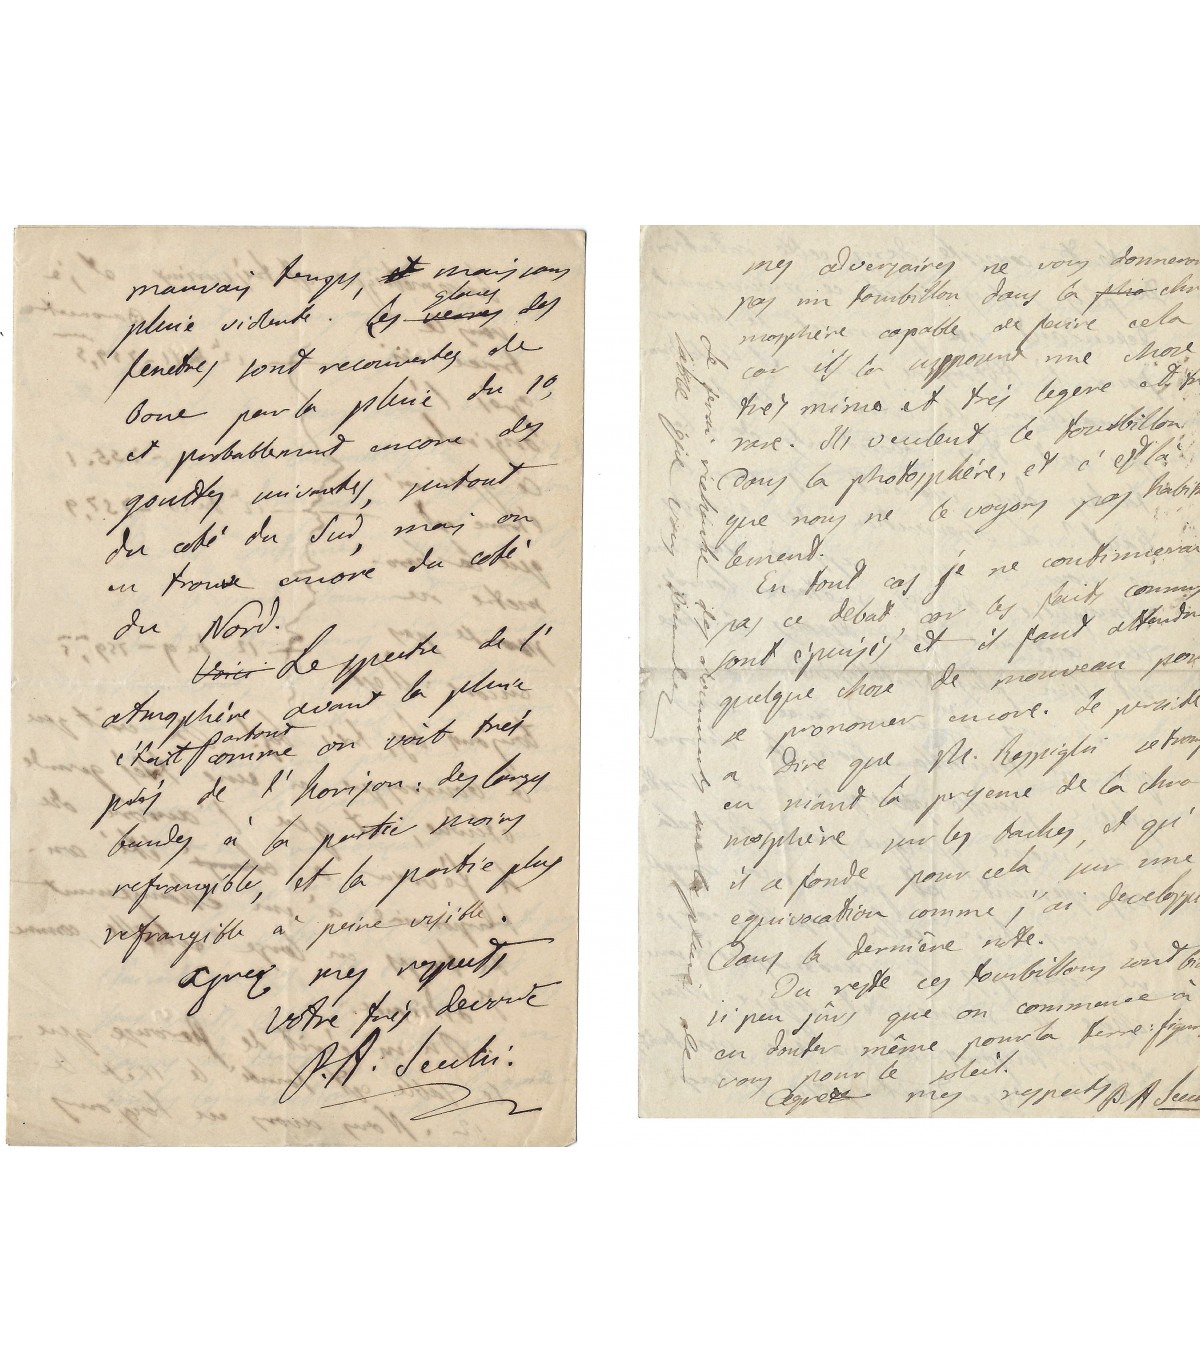 mauvais temps, et mais sans
glaces
pluie violente. Les verres des
fenetres sont recouvertes de
boue par la pluie du 10,
et probablement encore des
gouttes suivantes, surtout
du coté du Sud, mais on
en trouve encore du coté
du Nord.
Voici Le spectre de l'
atmosphère avant la pluie
partout
était comme on voit très
près de l'horizon: des larges
bandes à la partie moins
refrangible, et la partie plus
refrangible à peine visible.
Agreez mes respects
Votre très devoué
P. A. Secchi.
mes adversaires ne vous donneron
pas un tourbillon dans la pho chro
mosphère capable de faire cela
car ils la supposent une chose
très mince et très legere et tr
rare. Ils veulent le tourbillon
dans la photosphère, et c'est là
que nous ne le voyons pas habit
lement.
En tout cas je ne continuerai
pas ce debat, car les faits connus
sont épuisés et il faut attendre
quelque chose de nouveau pour
se prononcer encore. Je persiste
a dire que M. Respighi se trom
en niant la presence de la chro
mosphère sur les taches, et qu'
il se fonde pour cela sur une
equivocation comme j'ai developpé
dans la dernière note.
Du reste ces tourbillons sont bi
si peu sûrs que on commence à
en douter même pour la terre: figur
vous pour le soleil.
Agreez mes respects P A Secch
Je ferai recherche des documents sur la pluie de
sable que vous demandez